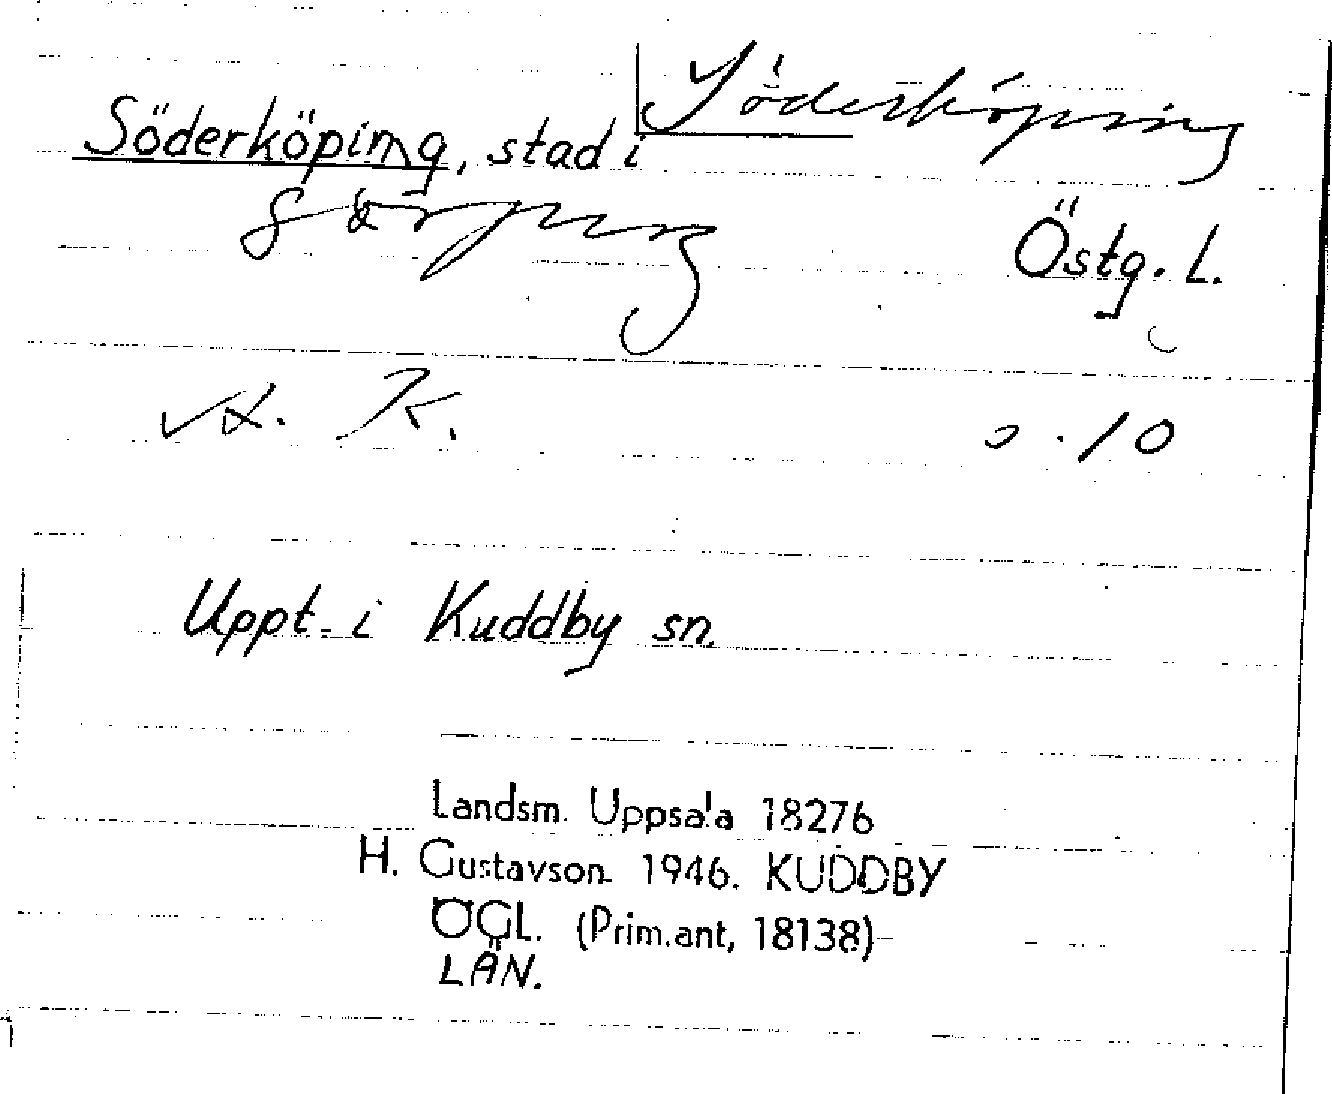 Söderköping
Söderköping, stad i
Östg. L.
A. K. 0.10
Uppt. i Kuddby sn.
Landsm. Uppsala 18276
H. Gustavson. 1946. KUDDBY
ÖGL. (Prim.ant, 18138)
LÄN.